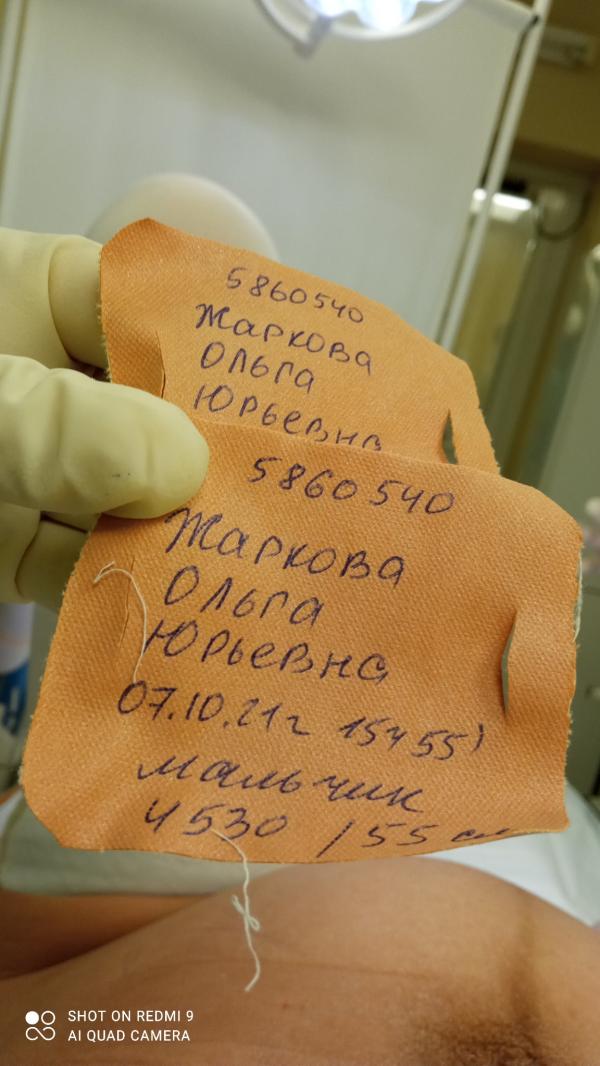 5860540
Жаркова
Ольга
Юрьевна
5860540
Жаркова
Ольга
Юрьевна
07.10.21г 15ч55'
мальчик
4530 / 55 см
SHOT ON REDMI 9
AI QUAD CAMERA